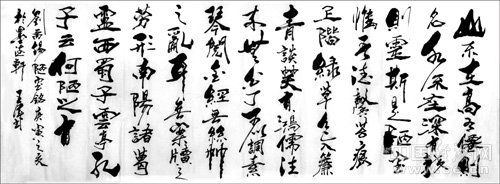 山不在高有僊則
名水不在深有龍
則靈斯是陋室
惟吾德馨苔痕
上階綠草色入簾
青談笑有鴻儒往
来無白丁可以調素
琴閱金經無絲竹
之亂耳無案牘之
勞形南陽諸葛
廬西蜀子雲亭孔
子云何陋之有
劉禹錫陋室銘庚寅之夏
於墨軒